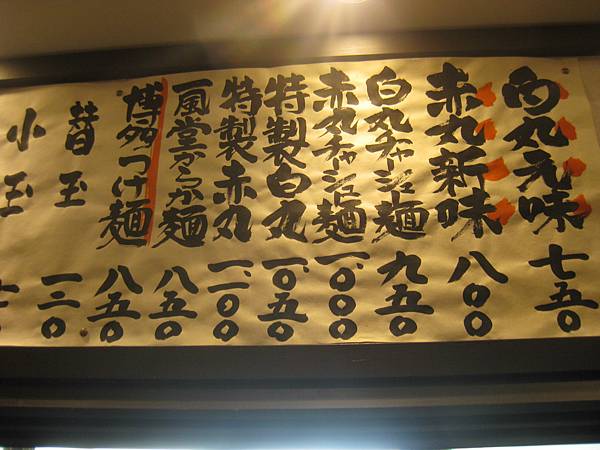 白丸元味 七五〇
赤丸新味 八〇〇
白丸チャーシュー麺 九五〇
赤丸チャーシュー麺 一、〇〇〇
特製白丸 一、〇五〇
特製赤丸 一、一〇〇
一風堂からか麺 八五〇
博多つけ麺 八五〇
替玉 一二〇
小玉